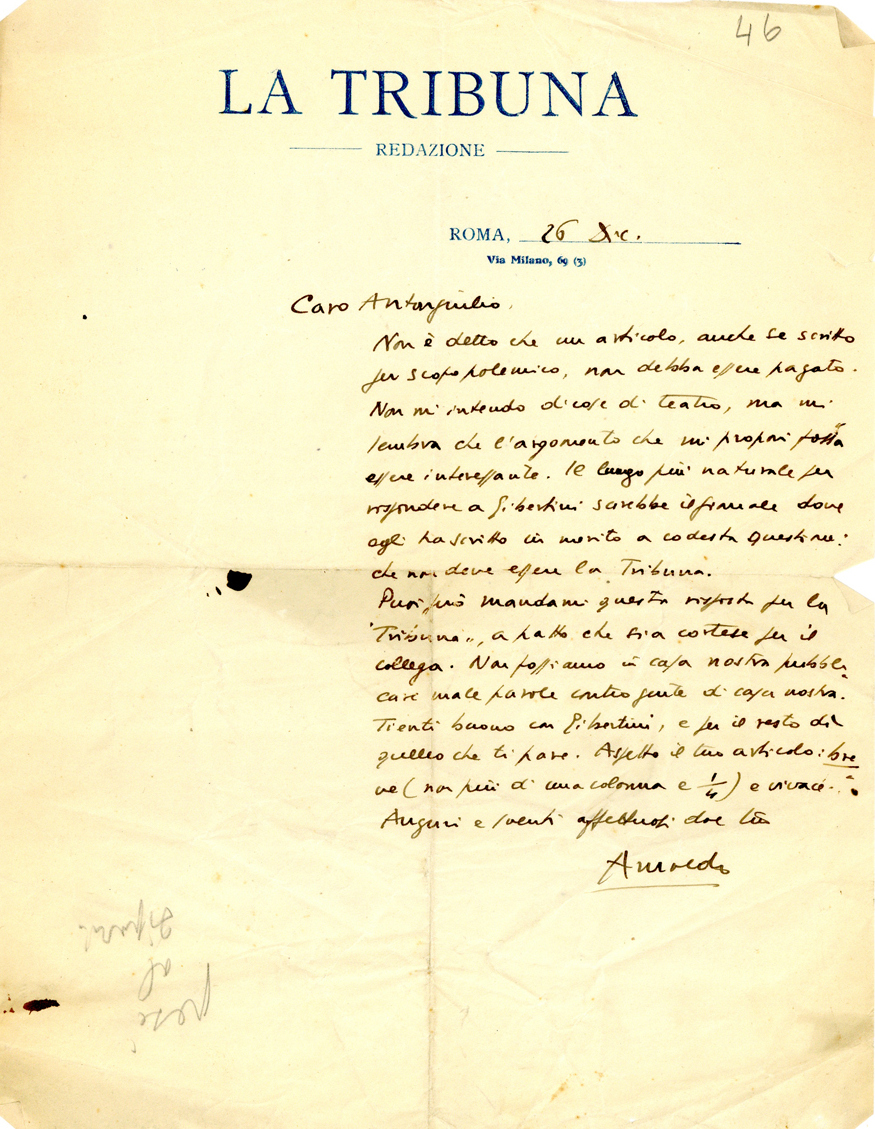 46
LA TRIBUNA
REDAZIONE
ROMA, 26 Dic.
Via Milano, 69 (3)
Caro Antongiulio,
Non è detto che un articolo, anche se scritto
per scopo polemico, non debba essere pagato.
Non mi intendo di cose di teatro, ma mi
sembra che l'argomento che mi proponi possa
essere interessante. Il luogo più naturale per
rispondere a Gibertini sarebbe il giornale dove
egli ha scritto in merito a codesta questione:
che non deve essere la Tribuna.
Puoi però mandarmi questa risposta per la
"Tribuna", a patto che sia cortese per il
collega. Non possiamo in casa nostra pubbli-
care male parole contro gente di casa nostra.
Tienti buono con Gibertini, e per il resto di'
quello che ti pare. Aspetto il tuo articolo: bre
ve (non più di una colonna e 1/4) e vivace.
Auguri e affettuosi dal tuo
Arnaldo